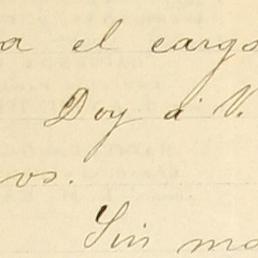 a el cargo
Doy a V.
vos.
Sin ma